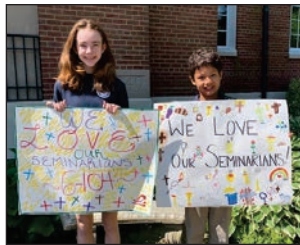 WE
LOVE
OUR
SEMINARIANS
WE LOVE
OUR SEMINARIANS